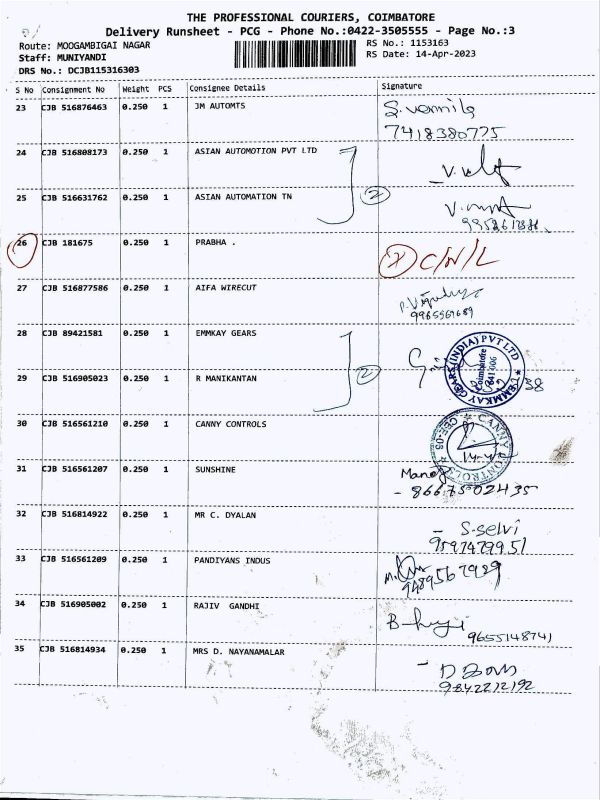 THE PROFESSIONAL COURIERS, COIMBATORE
Delivery Runsheet - PCG - Phone No.:0422-3505555 - Page No.:3
Route: MOOGAMBIGAI NAGAR
RS No.: 1153163
Staff: MUNIYANDI
RS Date: 14-Apr-2023
DRS No.: DCJB115316303
S No Consignment No Weight PCS Consignee Details Signature
23 CJB 516876463 0.250 1 JM AUTOMTS
7418380775
24 CJB 516808173 0.250 1 ASIAN AUTOMOTION PVT LTD
2
25 CJB 516631762 0.250 1 ASIAN AUTOMATION TN
26 CJB 181675 0.250 1 PRABHA .
C/N/L
27 CJB 516877586 0.250 1 AIFA WIRECUT
28 CJB 89421581 0.250 1 EMMKAY GEARS
EMMKAY GEARS (INDIA) PVT LTD
Coimbatore
2
29 CJB 516905023 0.250 1 R MANIKANTAN
38
30 CJB 516561210 0.250 1 CANNY CONTROLS
CANNY CONTROLS
31 CJB 516561207 0.250 1 SUNSHINE
Manoj
- 8667502435
32 CJB 516814922 0.250 1 MR C. DYALAN
- S.selvi
9597479951
33 CJB 516561209 0.250 1 PANDIYANS INDUS
9489567929
34 CJB 516905002 0.250 1 RAJIV GANDHI
9655148741
35 CJB 516814934 0.250 1 MRS D. NAYANAMALAR
9842212192